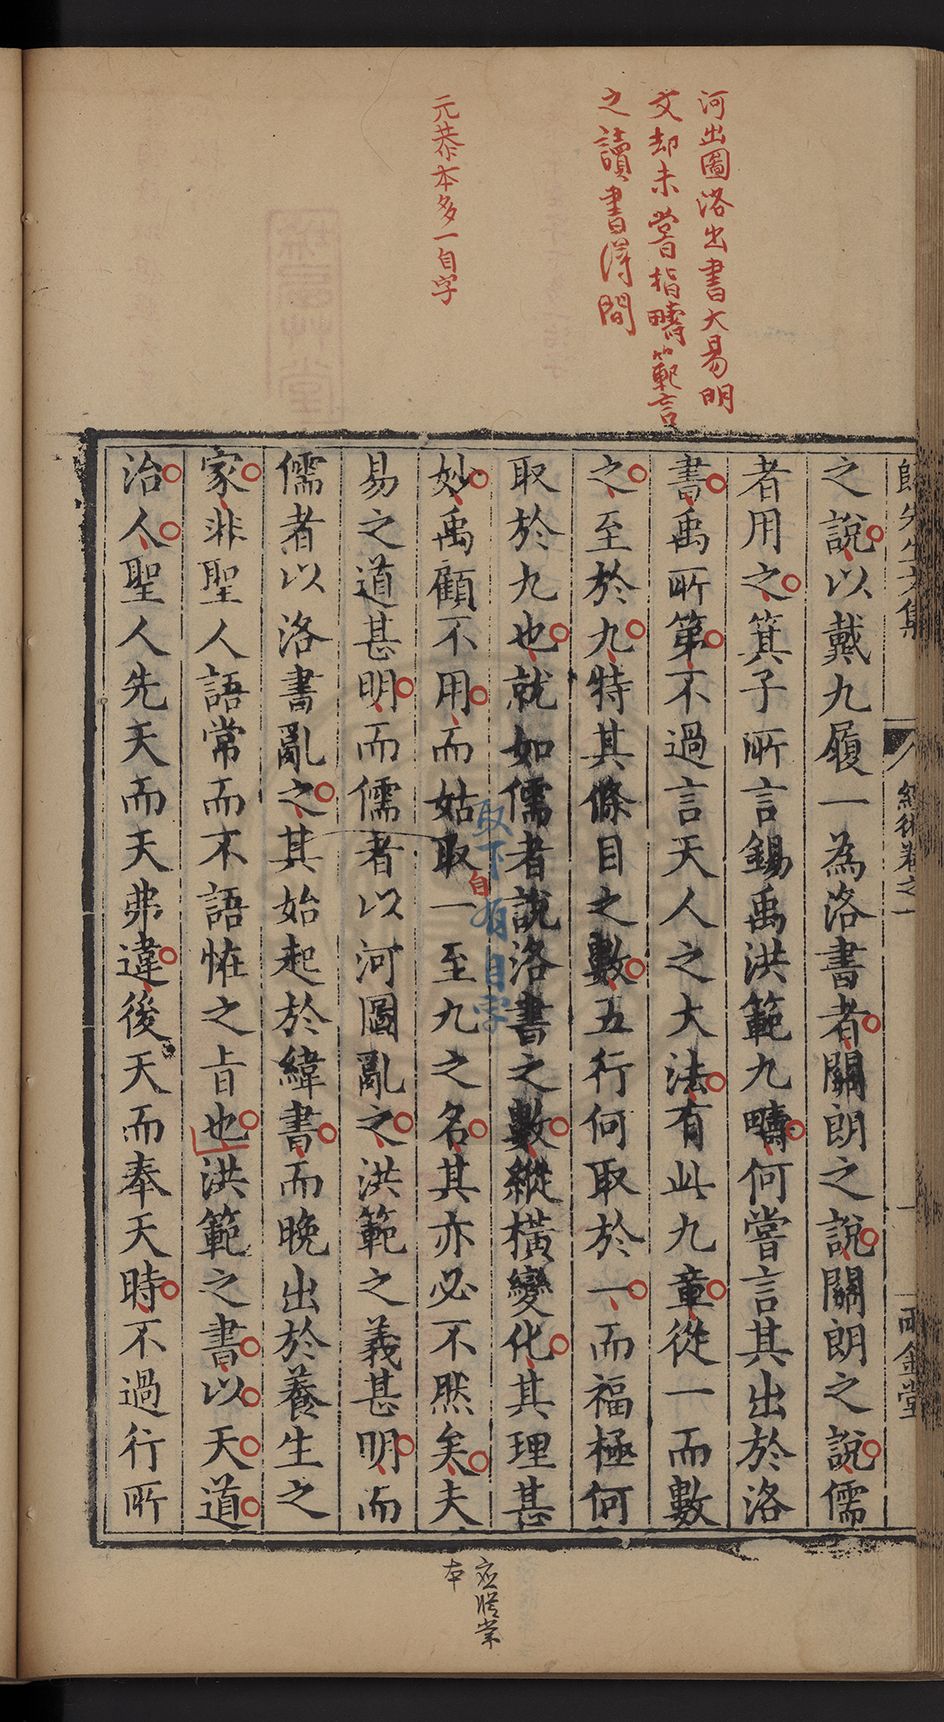 河出圖洛出書大易明
文却未嘗指疇範言
之讀書得間
元恭本多一自字
經術卷之一
一
雨金堂
之說以戴九履一為洛書者關朗之說關朗之說儒
者用之箕子所言錫禹洪範九疇何嘗言其出於洛
書禹所第不過言天人之大法有此九章從一而數
之至於九特其條目之數五行何取於一而福極何
取於九也就如儒者說洛書之數縱橫變化其理甚
取下有自字
妙禹顧不用而姑取一至九之名其亦必不然矣夫
自
易之道甚明而儒者以河圖亂之洪範之義甚明而
儒者以洛書亂之其始起於緯書而晚出於養生之
家非聖人語常而不語恠之旨也洪範之書以天道
治人聖人先天而天弗違後天而奉天時不過行所
本